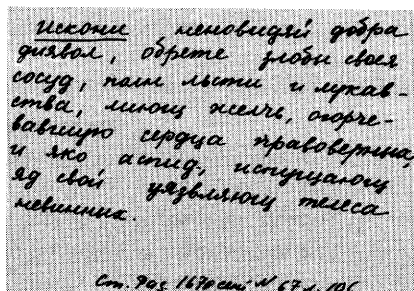 искони неновидяй добра
диявол, обрете злобы своея
сосуд, полн льсти и лукав-
ства, лиющ желчь, огорче-
вавшую сердца правоверных,
и яко аспид, испущающ
яд свой уязвляющ телеса
невинник.
Ст. Раз. 1670 № 67 л. 106